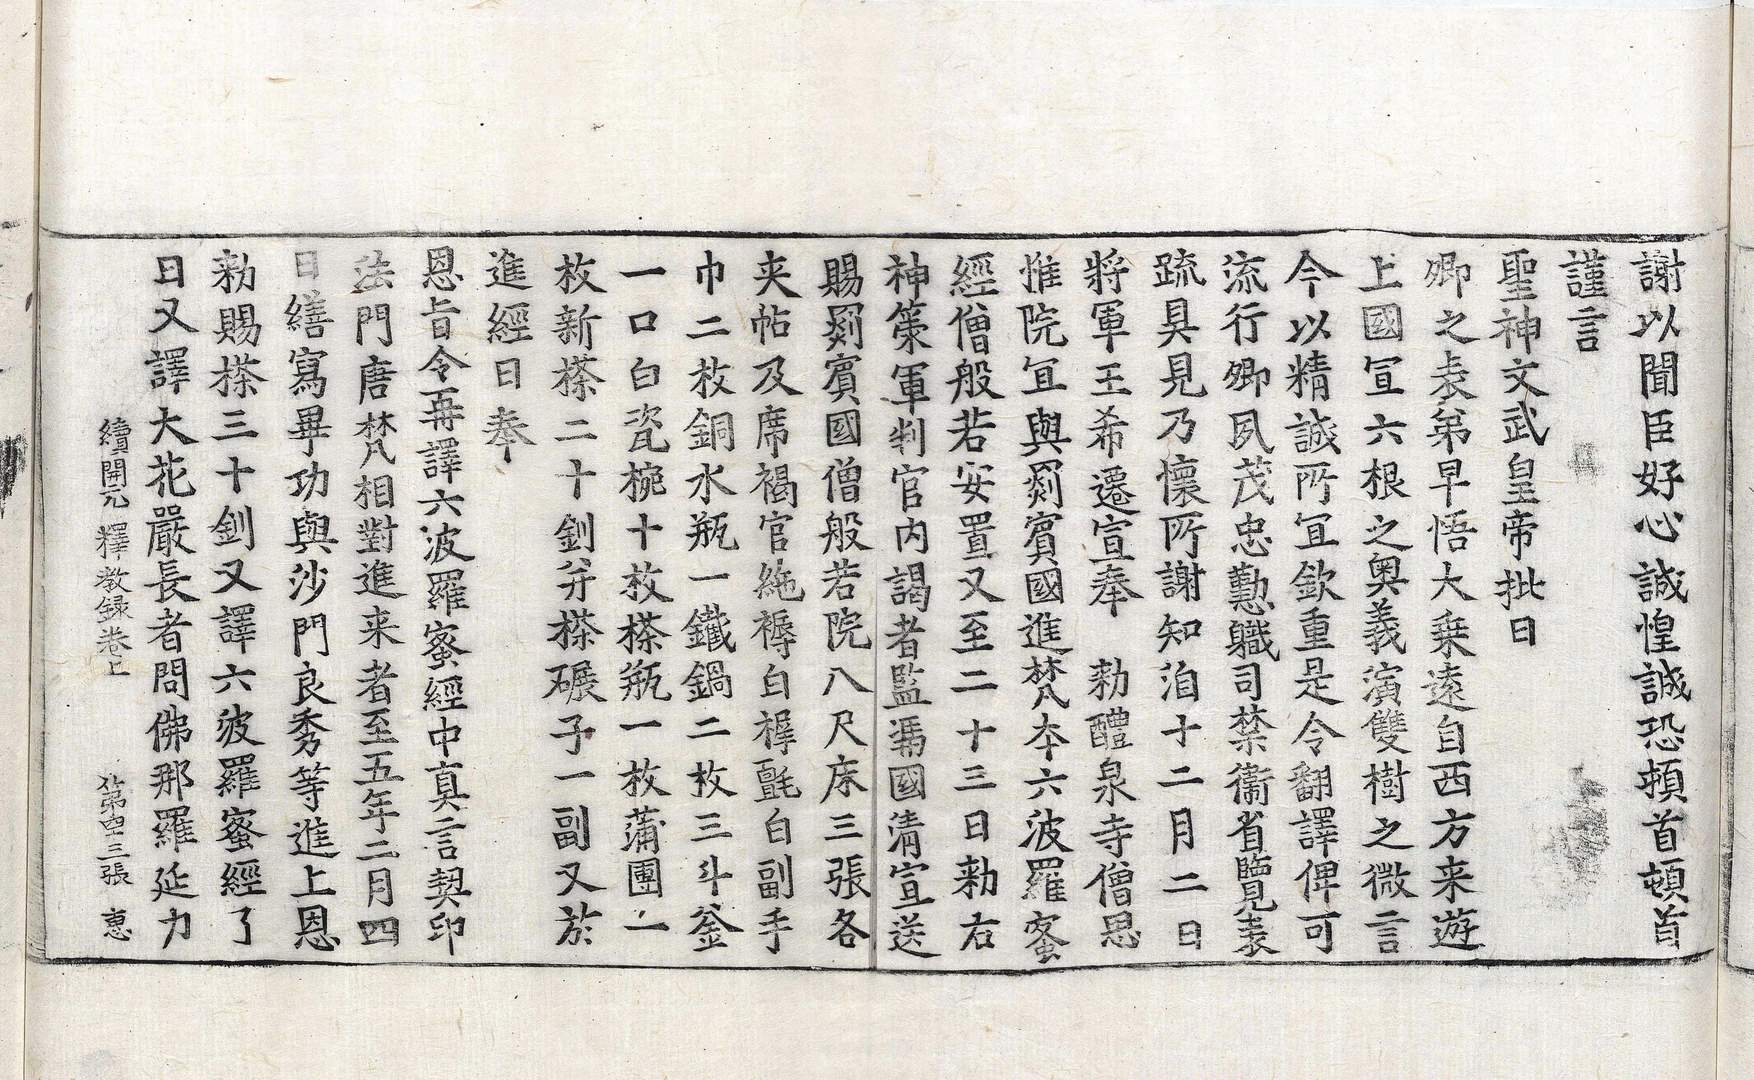 謝以聞臣好心誠惶誠恐頓首頓首
謹言
聖神文武皇帝批曰
卿之表弟早悟大乗遠自西方来遊
上國宣六根之奥義演雙樹之微言
今以精誠所宜欽重是令翻譯俾可
流行卿夙茂忠懃軄司禁衞省覽表
䟽具見乃懷所謝知泊十二月二日
將軍王希遷宣奉　勑醴泉寺僧思
惟院冝與罽賓國進梵夲六波羅蜜
經僧般若安置又至二十三日勑右
神策軍判官内謁者監馮國清宣送
賜罽賓國僧般若院八尺床三張各
夾帖及席褐官絁褥白㲲白副手
巾二枚銅水瓶一鐵鍋二枚三斗釜
一口白瓷椀十枚𣘻瓶一枚蒲團一
枚新𣘻二十釧并𣘻碾子一副又於
進經日奉
恩旨令再譯六波羅蜜經中真言契印
法門唐梵相對進来者至五年二月四
日繕寫畢功與沙門良秀等進上恩
勑賜𣘻三十釧又譯六波羅蜜經了
日又譯大花嚴長者問佛那羅延力
續開元釋教録卷上　第四十三張　惠